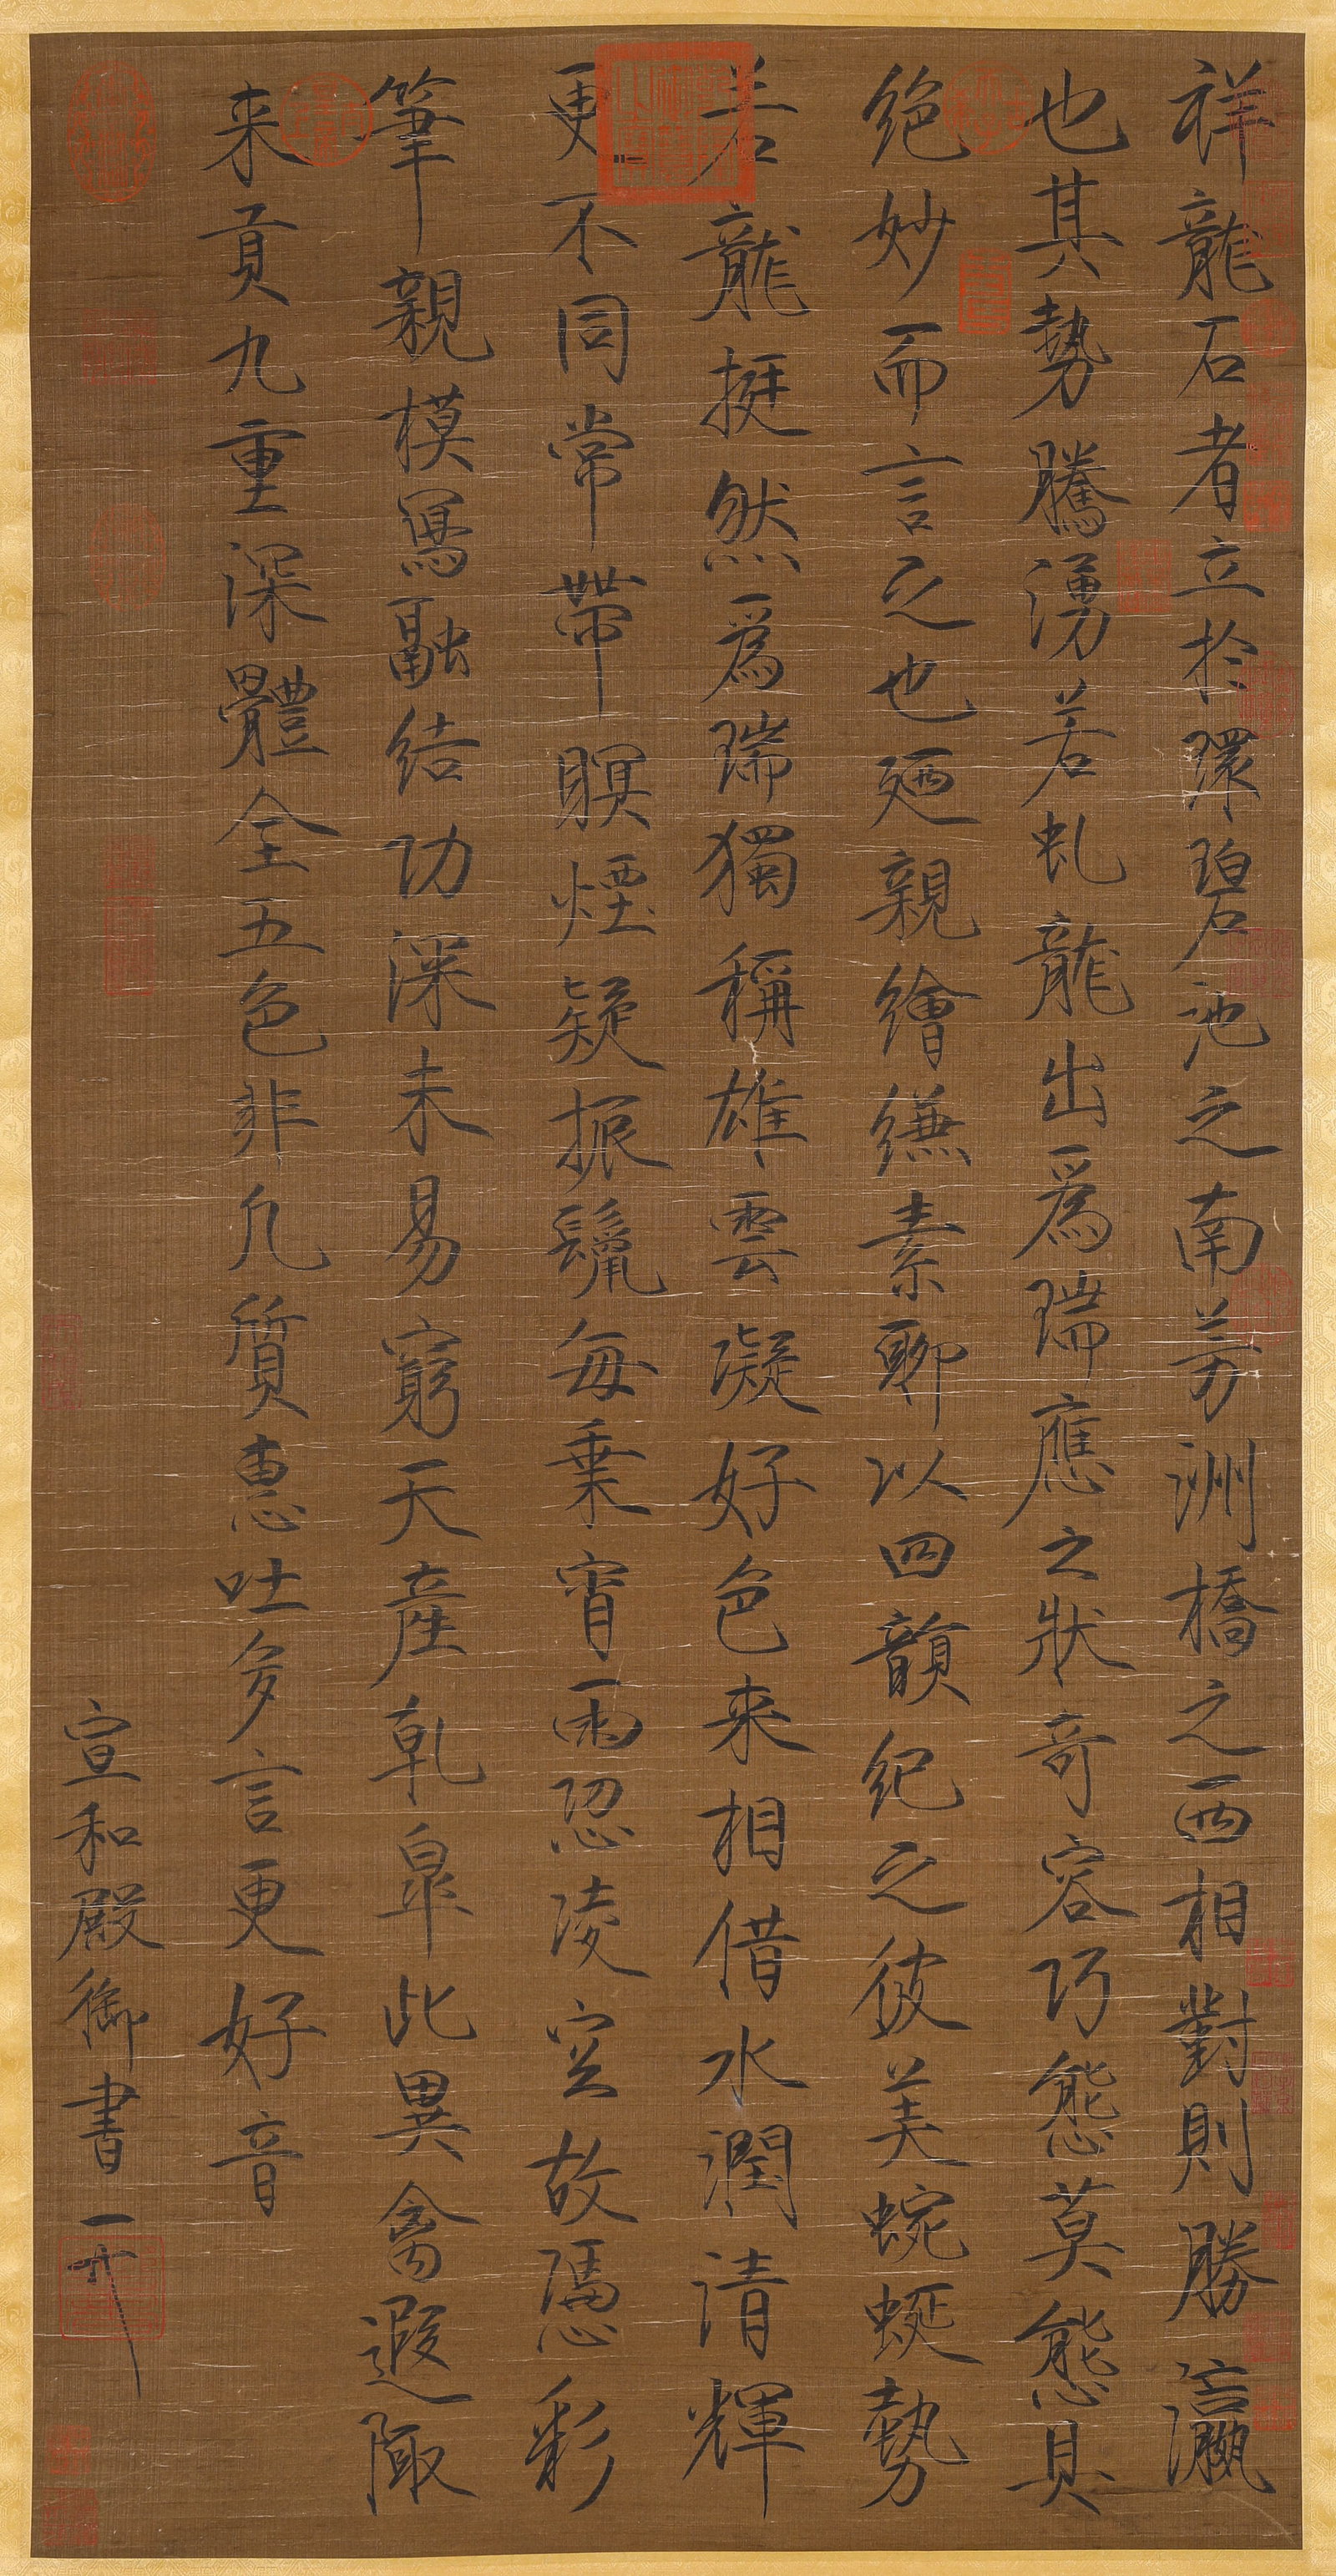 祥龍石者立於環碧池之南芳洲橋之西相對則勝瀛
也其勢騰湧若虬龍出爲瑞應之狀奇容巧態莫態具
絶妙而言之也廼親繪縑素聊以四韻紀之彼美蜿蜒勢
若龍挺然爲瑞獨稱雄雲凝好色来相借水潤清輝
更不同常帶瞑煙疑振鬣每乗宵雨恐陵空故憑彩
筆親模寫融結功深未易窮天産乹皐此異禽遐陬
来貢九重深體全五色非凡質惠吐多言更好音
宣和殿御書